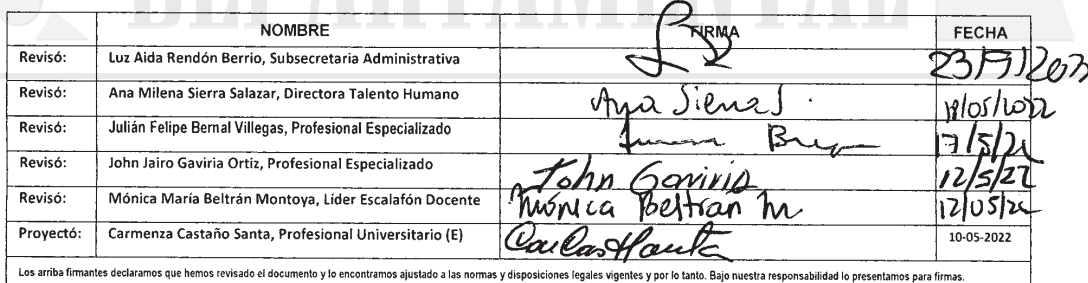 DEPARTAMENTAL
NOMBRE FIRMA FECHA
Revisó: Luz Aida Rendón Berrio, Subsecretaria Administrativa
Revisó: Ana Milena Sierra Salazar, Directora Talento Humano Ana Sierra S. 18/05/2022
Revisó: Julián Felipe Bernal Villegas, Profesional Especializado 17/5/22
Revisó: John Jairo Gaviria Ortiz, Profesional Especializado John Gaviria 12/5/22
Revisó: Mónica María Beltrán Montoya, Líder Escalafón Docente Mónica Beltran M. 12/05/22
Proyectó: Carmenza Castaño Santa, Profesional Universitario (E) 10-05-2022
Los arriba firmantes declaramos que hemos revisado el documento y lo encontramos ajustado a las normas y disposiciones legales vigentes y por lo tanto. Bajo nuestra responsabilidad lo presentamos para firmas.